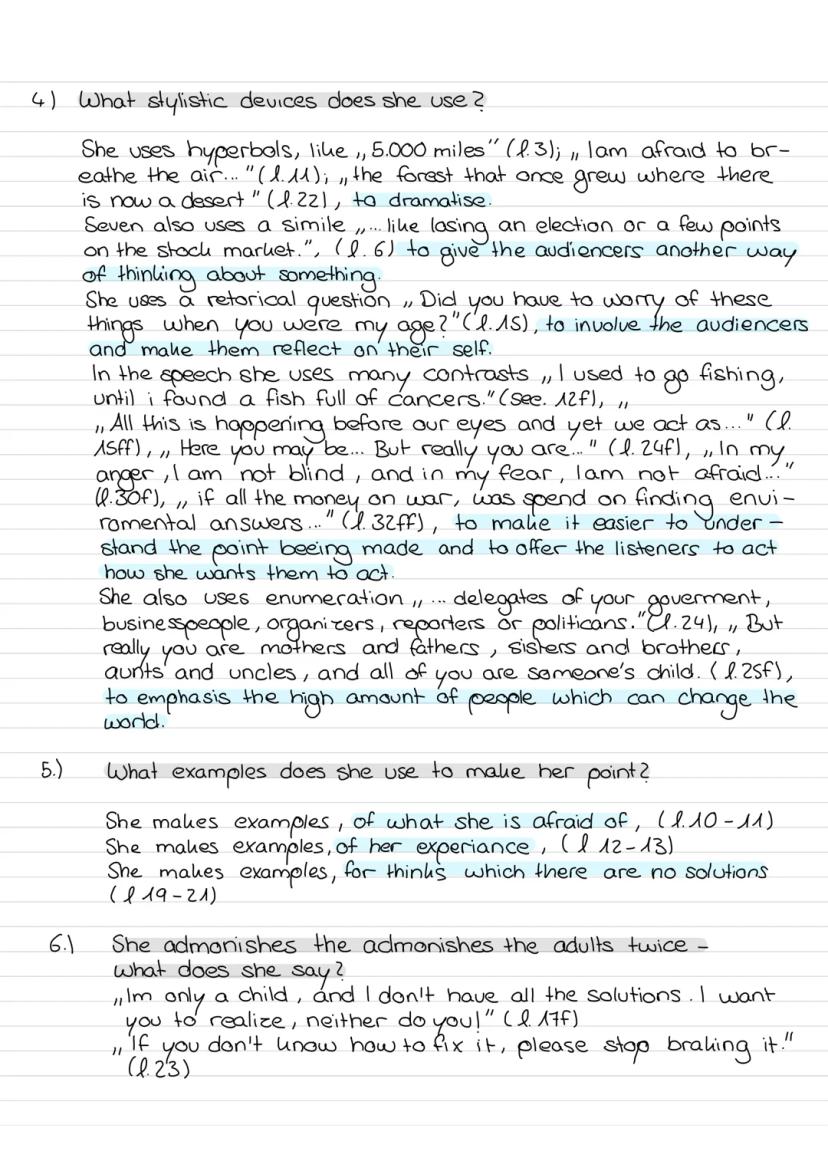 4) What stylistic devices does she use?
She uses hyperbols, like „5.000 miles" (l.3); „Iam afraid to br-
eathe the air..."(l.11); „the forest that once grew where there
is now a desert" (l.22), to dramatise.
Seven also uses a simile „... like losing an election or a few points
on the stock market.", (l. 6) to give the audiencers another way
of thinking about something.
She uses a retorical question „Did you have to worry of these
things when you were my age?"(l.15), to involve the audiencers
and make them reflect on their self.
In the speech she uses many contrasts „I used to go fishing,
until i found a fish full of cancers."(see. 12f), „
„All this is happening before our eyes and yet we act as..." (l.
15ff), „Here you may be... But really you are..." (l.24f), „In my
anger, I am not blind, and in my fear, Iam not afraid..."
(l.30f), „if all the money on war, was spend on finding envi-
romental answers..." (l.32ff), to make it easier to under-
stand the point beeing made and to offer the listeners to act
how she wants them to act.
She also uses enumeration „... delegates of your goverment,
businesspeople, organizers, reporters or politicans."(l.24), „But
really you are mothers and fathers, sisters and brothers,
aunts and uncles, and all of you are someone's child. (l.25f),
to emphasis the high amount of people which can change the
world.
5.) What examples does she use to make her point?
She makes examples, of what she is afraid of, (l.10-11)
She makes examples, of her experiance, (l 12-13)
She makes examples, for thinks which there are no solutions
(l 19-21)
6.) She admonishes the admonishes the adults twice -
what does she say?
„Im only a child, and I don't have all the solutions. I want
you to realize, neither do you!" (l.17f)
„If you don't know how to fix it, please stop braking it."
(l.23)